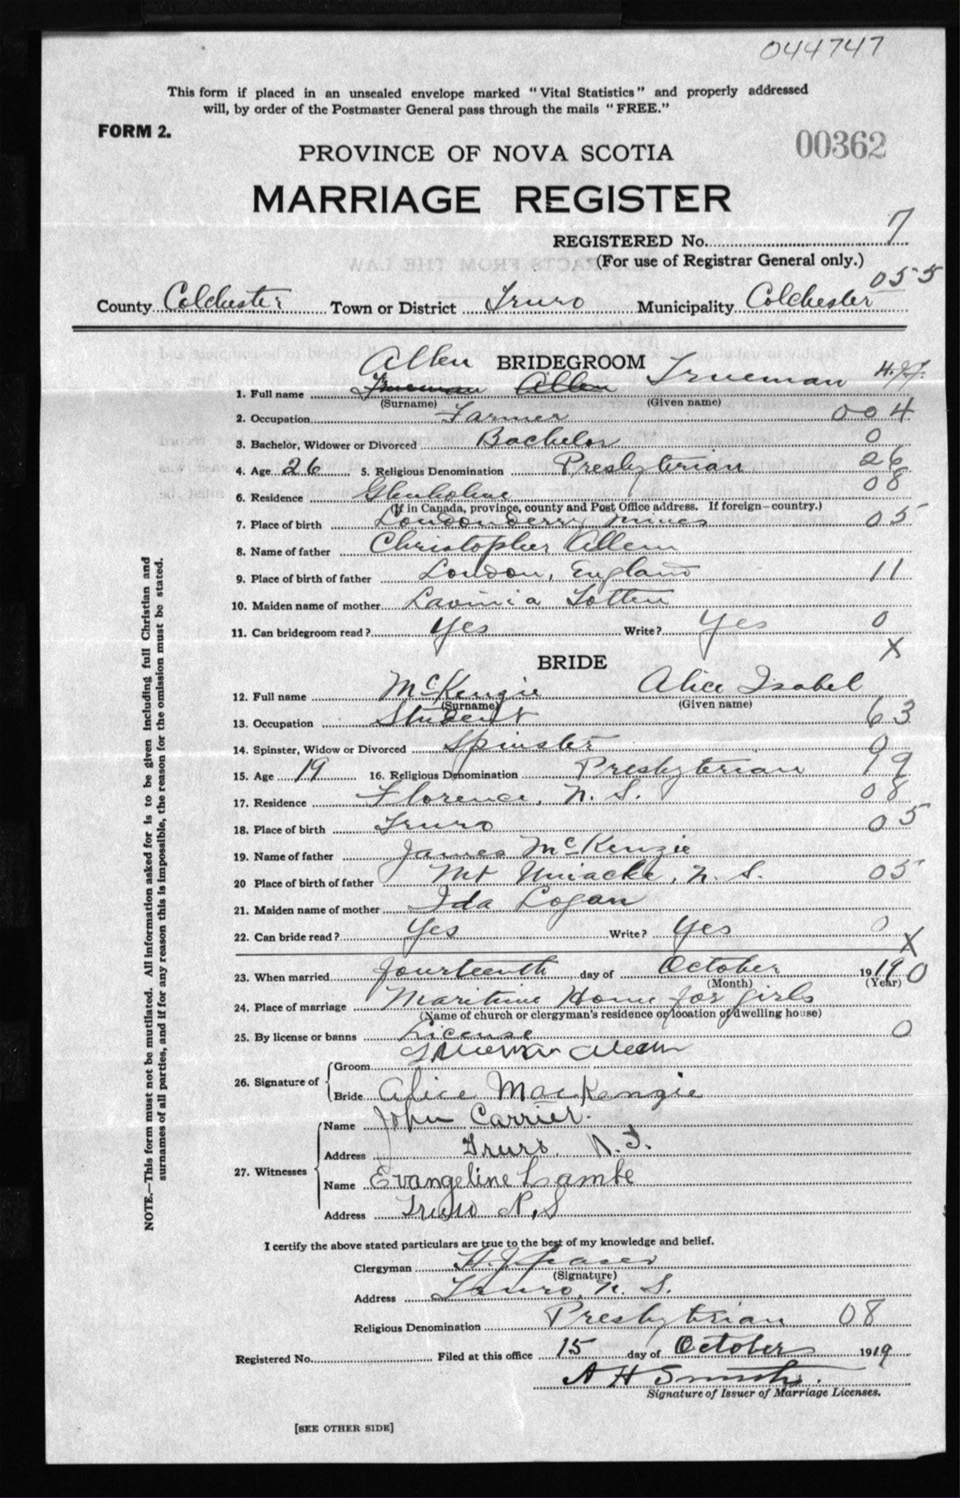 044747
This form if placed in an unsealed envelope marked "Vital Statistics" and properly addressed
will, by order of the Postmaster General pass through the mails "FREE."
FORM 2.
00362
PROVINCE OF NOVA SCOTIA
MARRIAGE REGISTER
REGISTERED No. 7
(For use of Registrar General only.)
055
County Colchester Town or District Truro Municipality Colchester
BRIDEGROOM
Allen Trueman
1. Full name Trueman Allen
(Surname) (Given name)
2. Occupation Farmer 004
3. Bachelor, Widower or Divorced Bachelor 0
4. Age 26 5. Religious Denomination Presbyterian 26
6. Residence Glenholme 08
(If in Canada, province, county and Post Office address. If foreign—country.)
7. Place of birth Londonderry Mines 05
8. Name of father Christopher Allen
9. Place of birth of father London, England 11
10. Maiden name of mother Lavinia Totten
11. Can bridegroom read? Yes Write? Yes 0
X
BRIDE
12. Full name McKenzie Alice Isabel
(Surname) (Given name)
13. Occupation Student 63
14. Spinster, Widow or Divorced Spinster 0
15. Age 19 16. Religious Denomination Presbyterian 19
17. Residence Florence, N. S. 08
18. Place of birth Truro 05
19. Name of father James McKenzie
20 Place of birth of father Mt Uniacke, N. S. 05
21. Maiden name of mother Ida Logan
22. Can bride read? Yes Write? Yes 0
X
23. When married fourteenth day of October 1919 0
(Month) (Year)
24. Place of marriage Maritime Home for girls
(Name of church or clergyman's residence or location of dwelling house)
25. By license or banns License 0
26. Signature of Groom Trueman Allen
Bride Alice MacKenzie
27. Witnesses
Name John Carrier.
Address Truro N.S.
Name Evangeline Lambe
Address Truro N.S
I certify the above stated particulars are true to the best of my knowledge and belief.
Clergyman H. J. Fraser
(Signature)
Address Truro, N. S.
Religious Denomination Presbyterian 08
Registered No. Filed at this office 15 day of October 1919
A H Smith.
Signature of Issuer of Marriage Licenses.
[SEE OTHER SIDE]
NOTE.—This form must not be mutilated. All information asked for is to be given including full Christian and
surnames of all parties, and if for any reason this is impossible, the reason for the omission must be stated.